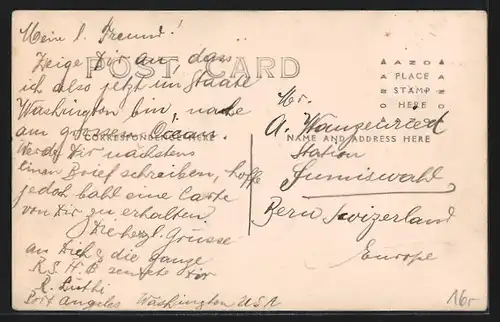 Mein l. Freund!
Zeige Dir an, dass
ich also jetzt im Staate
Washington bin, nahe
am grossen Ocean.
Werde Dir nächstens
einen Brief schreiben, hoffe
jedoch bald eine Karte
von Dir zu erhalten.
Die herzl. Grüsse
an Dich & die ganze
R.S.H.B sendet Dir
R. Lüthi
Port Angeles Washington USA
POST CARD
CORRESPONDENCE HERE
AZO
PLACE
STAMP
HERE
NAME AND ADDRESS HERE
Hr.
A. Wanzenried
Station
Sumiswald
Bern Swizerland
Europe
16r